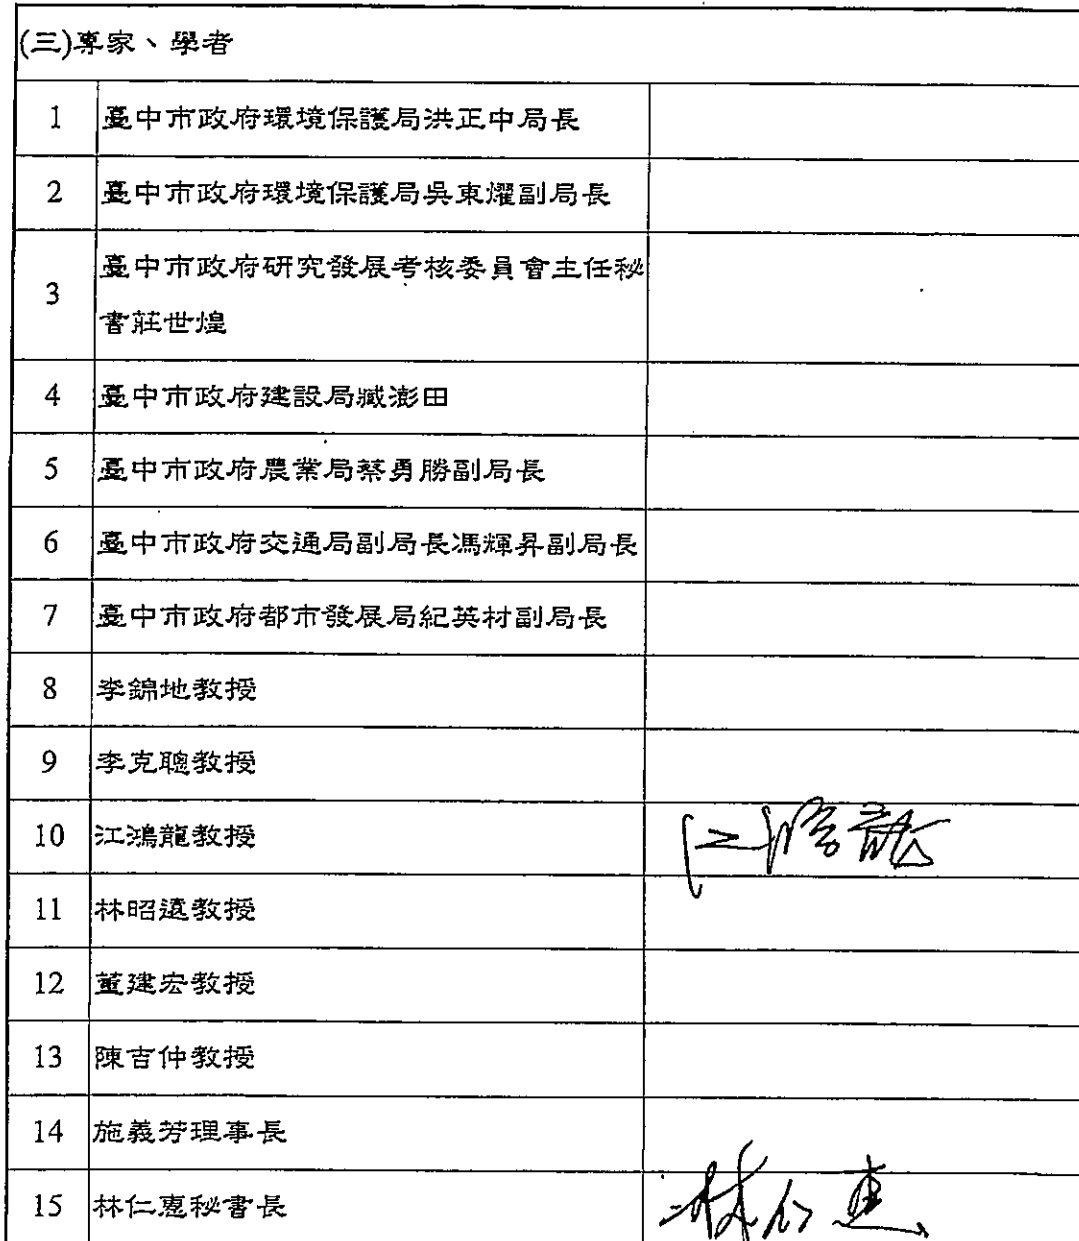 (三)專家、學者
1 臺中市政府環境保護局洪正中局長
2 臺中市政府環境保護局吳東燿副局長
3 臺中市政府研究發展考核委員會主任秘
書莊世煌
4 臺中市政府建設局臧澎田
5 臺中市政府農業局蔡勇勝副局長
6 臺中市政府交通局副局長馮輝昇副局長
7 臺中市政府都市發展局紀英村副局長
8 李錦地教授
9 李克聰教授
10 江鴻龍教授 江鴻龍
11 林昭遠教授
12 董建宏教授
13 陳吉仲教授
14 施義芳理事長
15 林仁惠秘書長 林仁惠